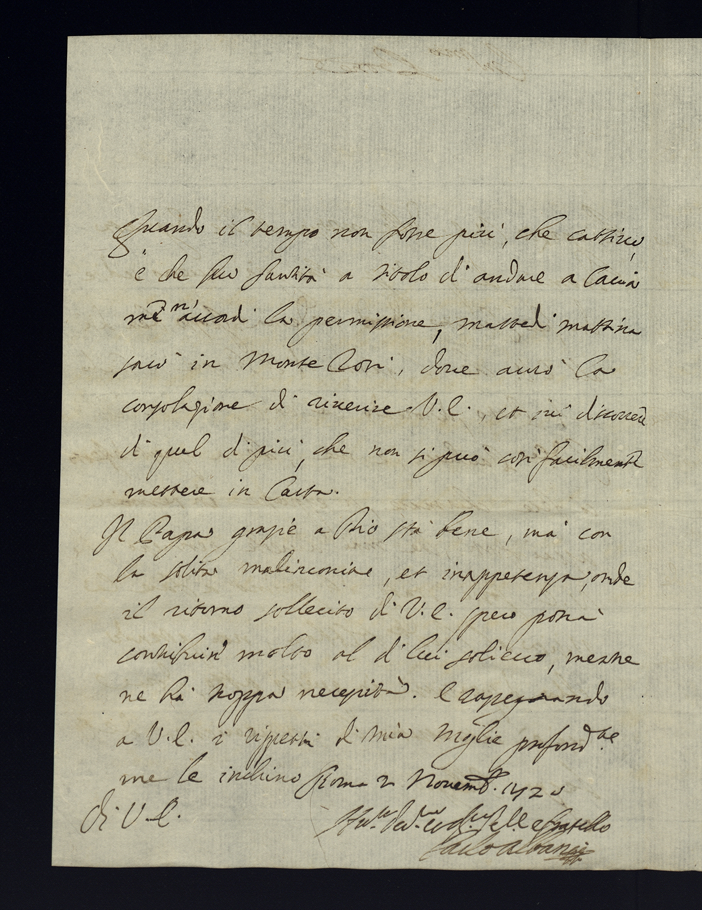 Quando il tempo non fosse più, che cattivo,
e che Sua Santità a titolo di andare a Caccia
me n'accordi la permissione, martedì mattina
sarò in Monte Rosi, dove avrò la
consolazione di riverire V.E., et ivi discorrere
di quel di più, che non si può così facilmente
mettere in Carta.
Il Papa grazie a Dio stà bene, mà con
la solita malinconia, et inappetenza, onde
il ritorno sollecito di V.E. spero potrà
contribuir molto al di lui sollievo, mentre
ne hà troppa necessità. E rassegnando
a V.E. i rispetti di mia Moglie profond.te
me le inchino Roma 2 Novemb. 1720
di V.E.
Fratello
Carlo Albani